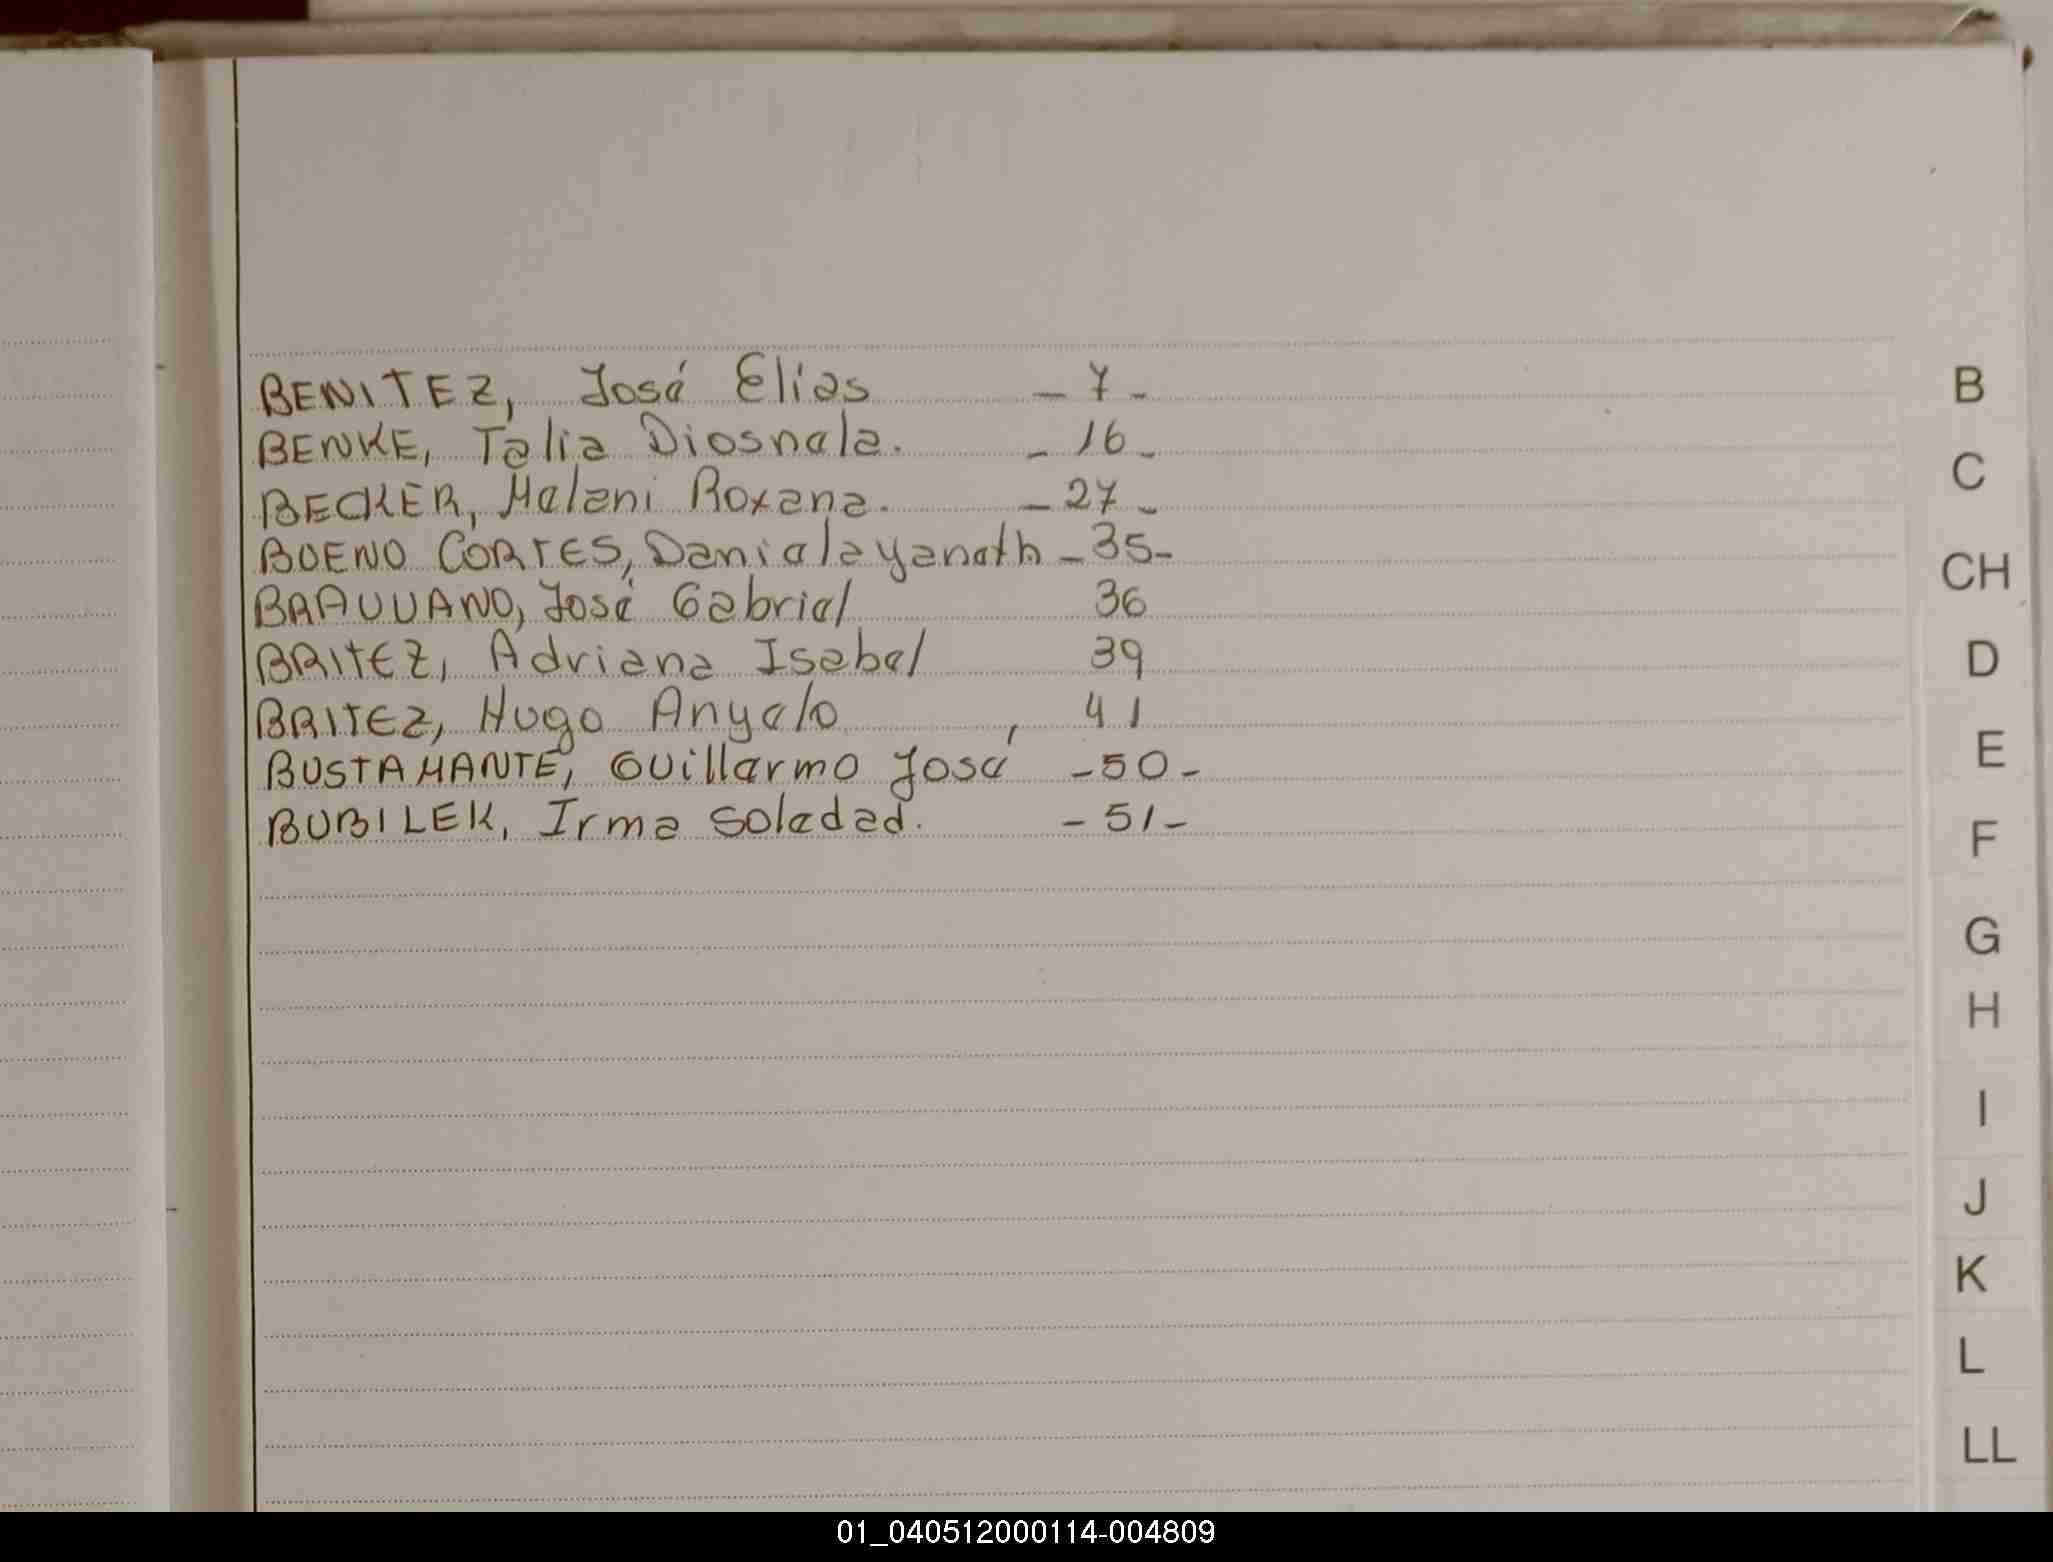 BENITEZ, José Elias - 7 -
BENKE, Talia Diosnela. - 16 -
BECKER, Melani Roxana. - 27 -
BUENO CORTES, Daniela yaneth - 35 -
José Gabriel 36
BRITEZ, Adriana Isabel 39
BRITEZ, Hugo Anyelo, 41
BUSTAMANTE, Guillermo José - 50 -
BUBILEK, Irma Soledad. - 51 -
B
C
CH
D
E
F
G
H
I
J
K
L
LL
01_040512000114-004809